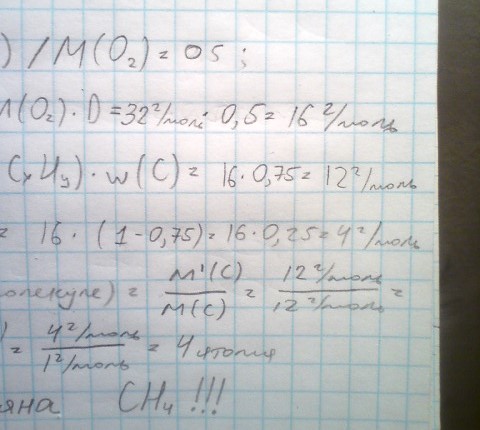 ) / M(O₂) = 0 5 ;
M(O₂) · D = 32 г/моль · 0,5 = 16 г/моль
CxHy) · w(C) = 16 · 0,75 = 12 г/моль
= 16 · (1 - 0,75) = 16 · 0,25 = 4 г/моль
молекуле) = M'(C) / M(C) = 12 г/моль / 12 г/моль =
) = 4 г/моль / 1 г/моль = 4 атома
CH₄ !!!